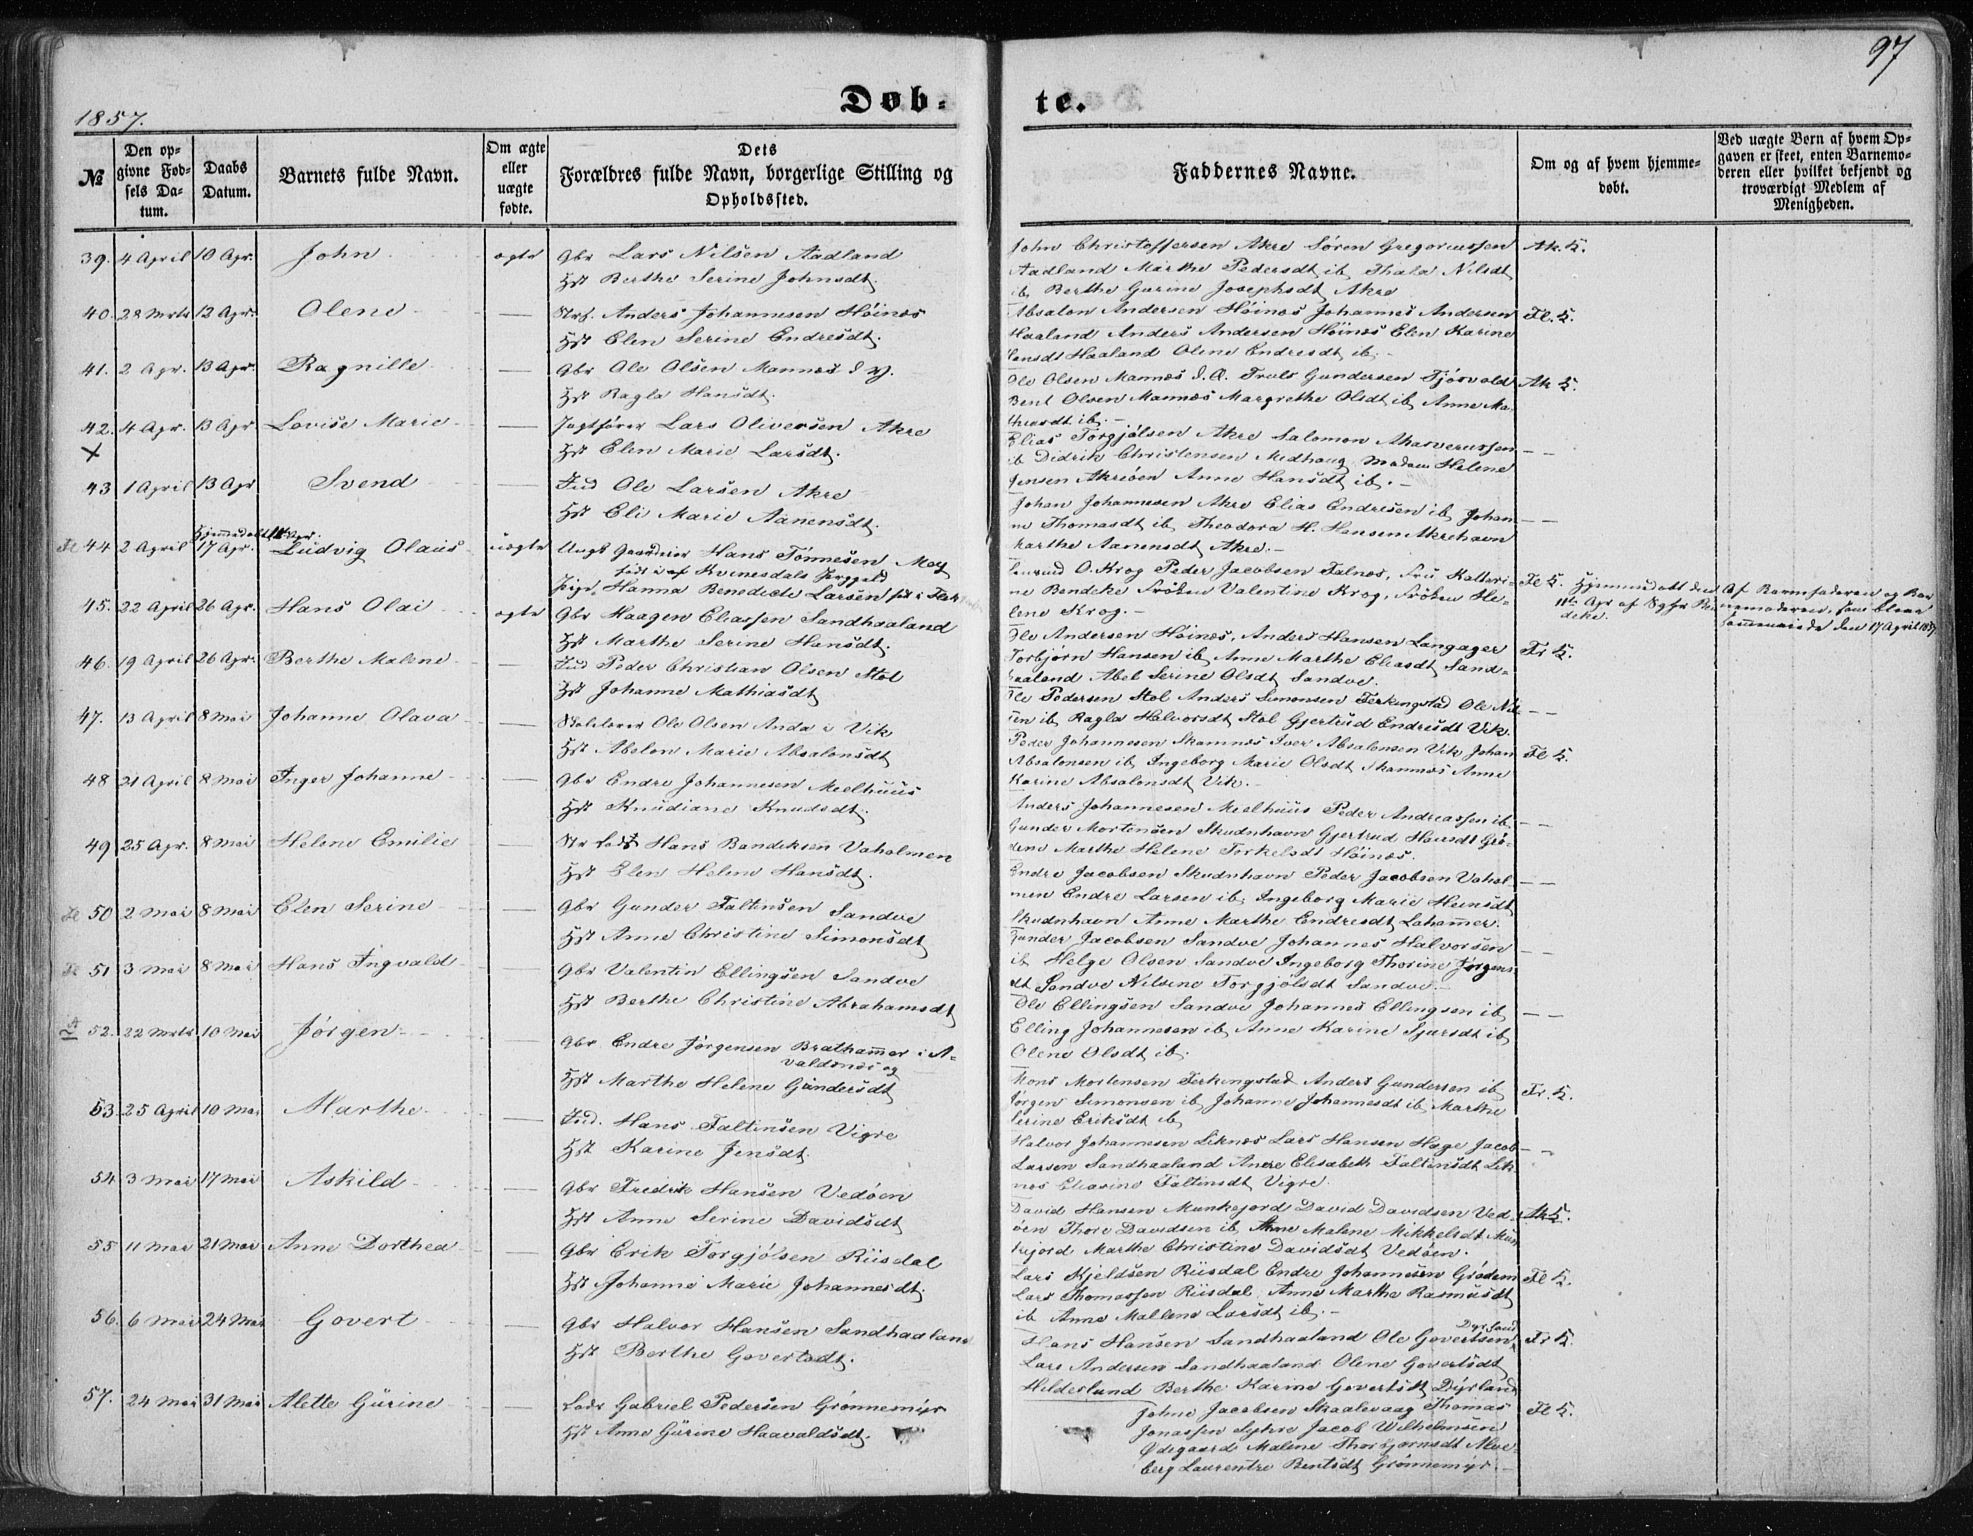 97
1857.
Døb-
te.
№
Den opgivne Fødsels Datum.
Daabs Datum.
Barnets fulde Navn.
Om ægte eller uægte fødte.
Dets Forældres fulde Navn, borgerlige Stilling og Opholdssted.
Faddernes Navne.
Om og af hvem hjemmedøbt.
Ved uægte Børn af hvem Opgaven er skeet, enten Barnemoderen eller hvilket bekjendt og troværdigt Medlem af Menigheden.
39. 4 April 10 Apr. John ægte Gbr Lars Nilsen Aadland
Hst Berthe Serine Johnsdt.
John Christoffersen Akre Søren Gregoriussen Ak. K.
Aadland Marthe Pedersdt ib Thala Nilsdt
ib Berthe Gurine Josephsdt Akre
40. 28 Mrts 12 Apr. Olene — Anders Johannesen Høinæs
Hst Elen Serine Endresdt.
Absalon Andersen Høinæs Johannes Andersen Fl. K.
Haaland Anders Andersen Høinæs Elen Karine
Hansdt Haaland Olene Endresdt ib.
41. 2 Apr. 13 Apr. Ragnille — Gbr Ole Olsen Mannæs d. y.
Hst Ragla Hansdt.
Ole Olsen Mannæs d. Æ. Truls Gundersen Tjøsvold Ak K.
Bent Olsen Mannæs Margrethe Olsdt ib Anne Ma-
theasdt ib. —
42. 4 Apr. 13 Apr Lovise Marie — Jagtfører Lars Oliversen Akre
X
Hst Elen Marie Larsdt.
Elias Torgjølsen Akre Salomon Ahasverussen — —
ib Didrik Christensen Medhaug Madam Helene
Jensen Akreøen Anne Hansdt ib. —
43 1 April 13 Apr Svend — Ind Ole Larsen Akre
Hst Eli Marie Aanensdt.
Johan Johannesen Akre Elias Endresen ib Johan- — —
ne Thomasdt ib Theodora H. Hansen Akrehavn
Marthe Aanensdt Akre. —
44 2 April 17 Apr. Ludvig Olaus uægte Ungk Hans Tønnesen Moy
født i af Kvinesdals Prgjeld
Pige Hanna Benedicte Larsen
O. Krog Peder Jacobsen Falnæs, Fru Kathri- Fl K. Hjemmedøbt den
ne Bendeke Frøken Valentine Krog, Frøken He- 11te Apr af Sgpr Ben-
lene Krog. — deke.
Af Barnefaderen og Bar-
nemoderen, som bleve
den 17 April 1857
45. 22 April 26 Apr. Hans Olai ægte Gbr Haagen Eliassen Sandhaaland
Hst Marthe Serine Hansdt.
Ole Andersen Høinæs, Anders Hansen Langager Fr K.
Torbjørn Hansen ib Anne Marthe Eliasdt Sand-
haaland Abel Serine Olsdt Sandve.
46. 19 April 26 Apr. Berthe Malene — Ind Peder Christian Olsen Stol
Hst Johanne Mathiasdt
Ole Pedersen Stol Anders Simonsen Ferkingstad Ole Nil- — —
sen ib Ragla Halvorsdt Stol Gjertrud Endresdt Vik.
47. 13 April 8 Mai Johanne Olava — Ole Olsen Anda i Vik
Hst Abelon Marie Absalonsdt
Peder Johannesen Skamnæs Iver Absalonsen Vik Johan Fl K.
Absalonsen ib Ingeborg Marie Olsdt Skamnæs Anne
Karine Absalonsdt Vik. —
48 21 April 8 Mai Inger Johanne — Gbr Endre Johannesen Meelhuus
Hst Knudiane Knudsdt.
Anders Johannesen Meelhuus Peder Andreassen ib — —
Gunder Mortensen Skudnhavn Gjertrud Hansdt Grø-
dene Marthe Helene Torkelsdt Høinæs.
49 25 Apr. 8 Mai Helene Emilie — Hans Bendiksen Vaholmen
Hst Elen Helene Hansdt.
Endre Jacobsen Skudnhavn Peder Jacobsen Vahol- — —
men Endre Larsen ib Ingeborg Marie
Skudnhavn Anne Marthe Endresdt Lahammer.
50 2 Mai 8 Mai Elen Serine — Gbr Gunder Faltinsen Sandve
Hst Anne Christine Simonsdt
Gunder Jacobsen Sandve Johannes Halvorsen — —
ib Helge Olsen Sandve Ingeborg Thorine Jørgens-
dt Sandve Nilsine Torgjølsdt Sandve —
51 3 Mai 8 Mai Hans Ingvald — Gbr Valentin Ellingsen Sandve
Hst Berthe Christine Abrahamsdt
Ole Ellingsen Sandve Johannes Ellingsen ib — —
Elling Johannesen ib Anne Karine Sjursdt ib
Olene Olsdt ib.
52. 22 Mrts 10 Mai Jørgen — Gbr Endre Jørgensen Brathammer i A-
valdsnæs og
Hst Marthe Helene Gundersdt
Mons Mortensen Ferkingstad Anders Gundersen ib Fr. K.
Jørgen Simonsen ib Johanne Johannesdt ib Marthe
Serine Eriksdt ib
53. 25 April 10 Mai Marthe — Ind. Hans Faltinsen Vigre
Hst Karine Jensdt
Halvor Johannesen Liknæs Lars Hansen Hage Jacob — —
Larsen Sandhaaland Anne Elisabeth Faltinsdt Lik-
næs Eliasine Faltinsdt Vigre.
54 3 Mai 17 Mai Askild — Gbr Fredrik Hansen Vedøen
Hst Anne Serine Davidsdt
David Hansen Munkejord David Davidsen Ved- Ak K.
øen Thore Davidsen ib Anne Malene Mikkelsdt Mun-
kejord Marthe Christine Davidsdt Vedøen.
55 11 Mai 21 Mai Anne Dorthea — Gbr Erik Torgjølsen Riisdal
Hst Johanne Marie Johannesdt.
Lars Kjeldsen Riisdal Endre Johannesen Grødem Fl K.
Lars Thomassen Riisdal, Anne Marthe Rasmusdt
ib Anne Mallene Larsdt ib. —
56. 6 Mai 24 Mai Govert — Gbr Halvor Hansen Sandhaaland
Hst Berthe Govertsdt.
Dyrland
Hans Hansen Sandhaaland Ole Govertsen Fr K.
Lars Andersen Sandhaaland Olene Govertsdt
Hilderlund Berthe Karine Govertsdt Dyrland
57. 24 Mai 31 Mai Alette Gurine — Gabriel Pedersen Grønnemyr
Hst Anne Gurine Haavaldsdt.
Johne Jacobsen Skaalevaag Thomas Fl K.
Jonassen Syhre Jacob Wilhelmsen
Ødegaard Malene Thorbjørnsdt Alve-
berg Laurentze Bentsdt Grønnemyr. —